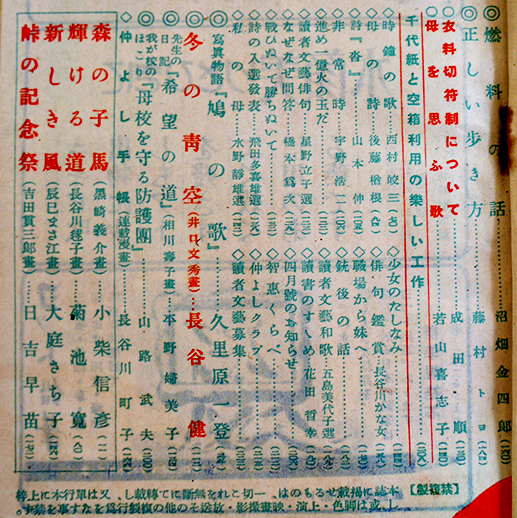 ◎燃料の話………沼畑金四郎
◎正しい歩き方………藤村トヨ
◎衣料切符制について………成田順
◎母を思ふ歌………若山喜志子
千代紙と空箱利用の楽しい工作
時鐘の歌……西村皎三
母の詩……後藤楢根
詩『沓』……山本伸
非常時……宇野浩二
進め一億火の玉だ
讀者文藝俳句……星野立子選
なぜなぜ問答……橋本爲次
戰ひぬいて勝ちぬいて
詩の入選發表……飛田多喜雄選
私の母……水野靜雄選
少女のたしなみ
俳句鑑賞……長谷川かな女
職場から妹へ
銃後の話
讀者文藝和歌……五島美代子選
讀書のすゝめ……花田哲幸
四月號のお知らせ
智惠くらべ
仲よしクラブ
讀者文藝募集
寫眞物語『鳩の歌』……久里原一登
冬の靑空(井口文秀畫)……長谷健
先生の日記『希望の道』(相川壽子畫)……本野婦美子
我が校のほこり『母校を守る防護團』……山路武夫
仲よし手帳(連載漫畫)……長谷川町子
森の子馬(黑崎義介畫)……小柴信彥
輝ける道(長谷川毬子畫)……菊池寬
新しき風(辰巳まさ江畫)……大庭さち子
峠の記念祭(吉田貫三郎畫)……日吉早苗
【禁複製】本誌に揭載せるものは、一切これを無斷にて轉載し、又は單行本に上梓
し、或は脚色・上演・映畫撮影・放送その他の複製行爲をなす事を禁ず。